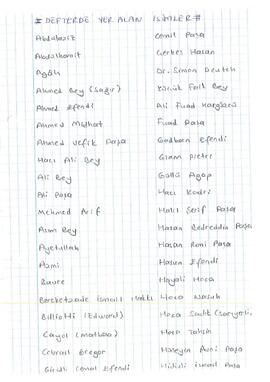 * DEFTERDE YER ALAN İSİMLER *
Abdülaziz
Abdülhamit
Agâh
Ahmed Bey (Sağır)
Ahmed Efendi
Ahmed Midhat
Ahmed Vefik Paşa
Hacı Ali Bey
Ali Bey
Ali Paşa
Mehmed Arif
Asım Bey
Ayetullah
Azmi
Bauer
Bereketzade İsmail Hakkı
Billiotti (Edward)
Cayol (matbaa)
Cebrail Gregor
Giritli Cemal Efendi
Cemil Paşa
Çerkes Hasan
Dr. Simon Deutch
Küçük Faik Bey
Ali Fuad
Fuad Paşa
Godban Efendi
Giampietri
Güllü Agop
Hacı Kadri
Halil Şerif Paşa
Hasan Bedreddin Paşa
Hasan Rami Paşa
Hasan Efendi
Hayali Hoca
Hoca Nasuh
Hoca Sadık
Hoca Tahsin
Hüseyin Avni Paşa
İsmail Paşa